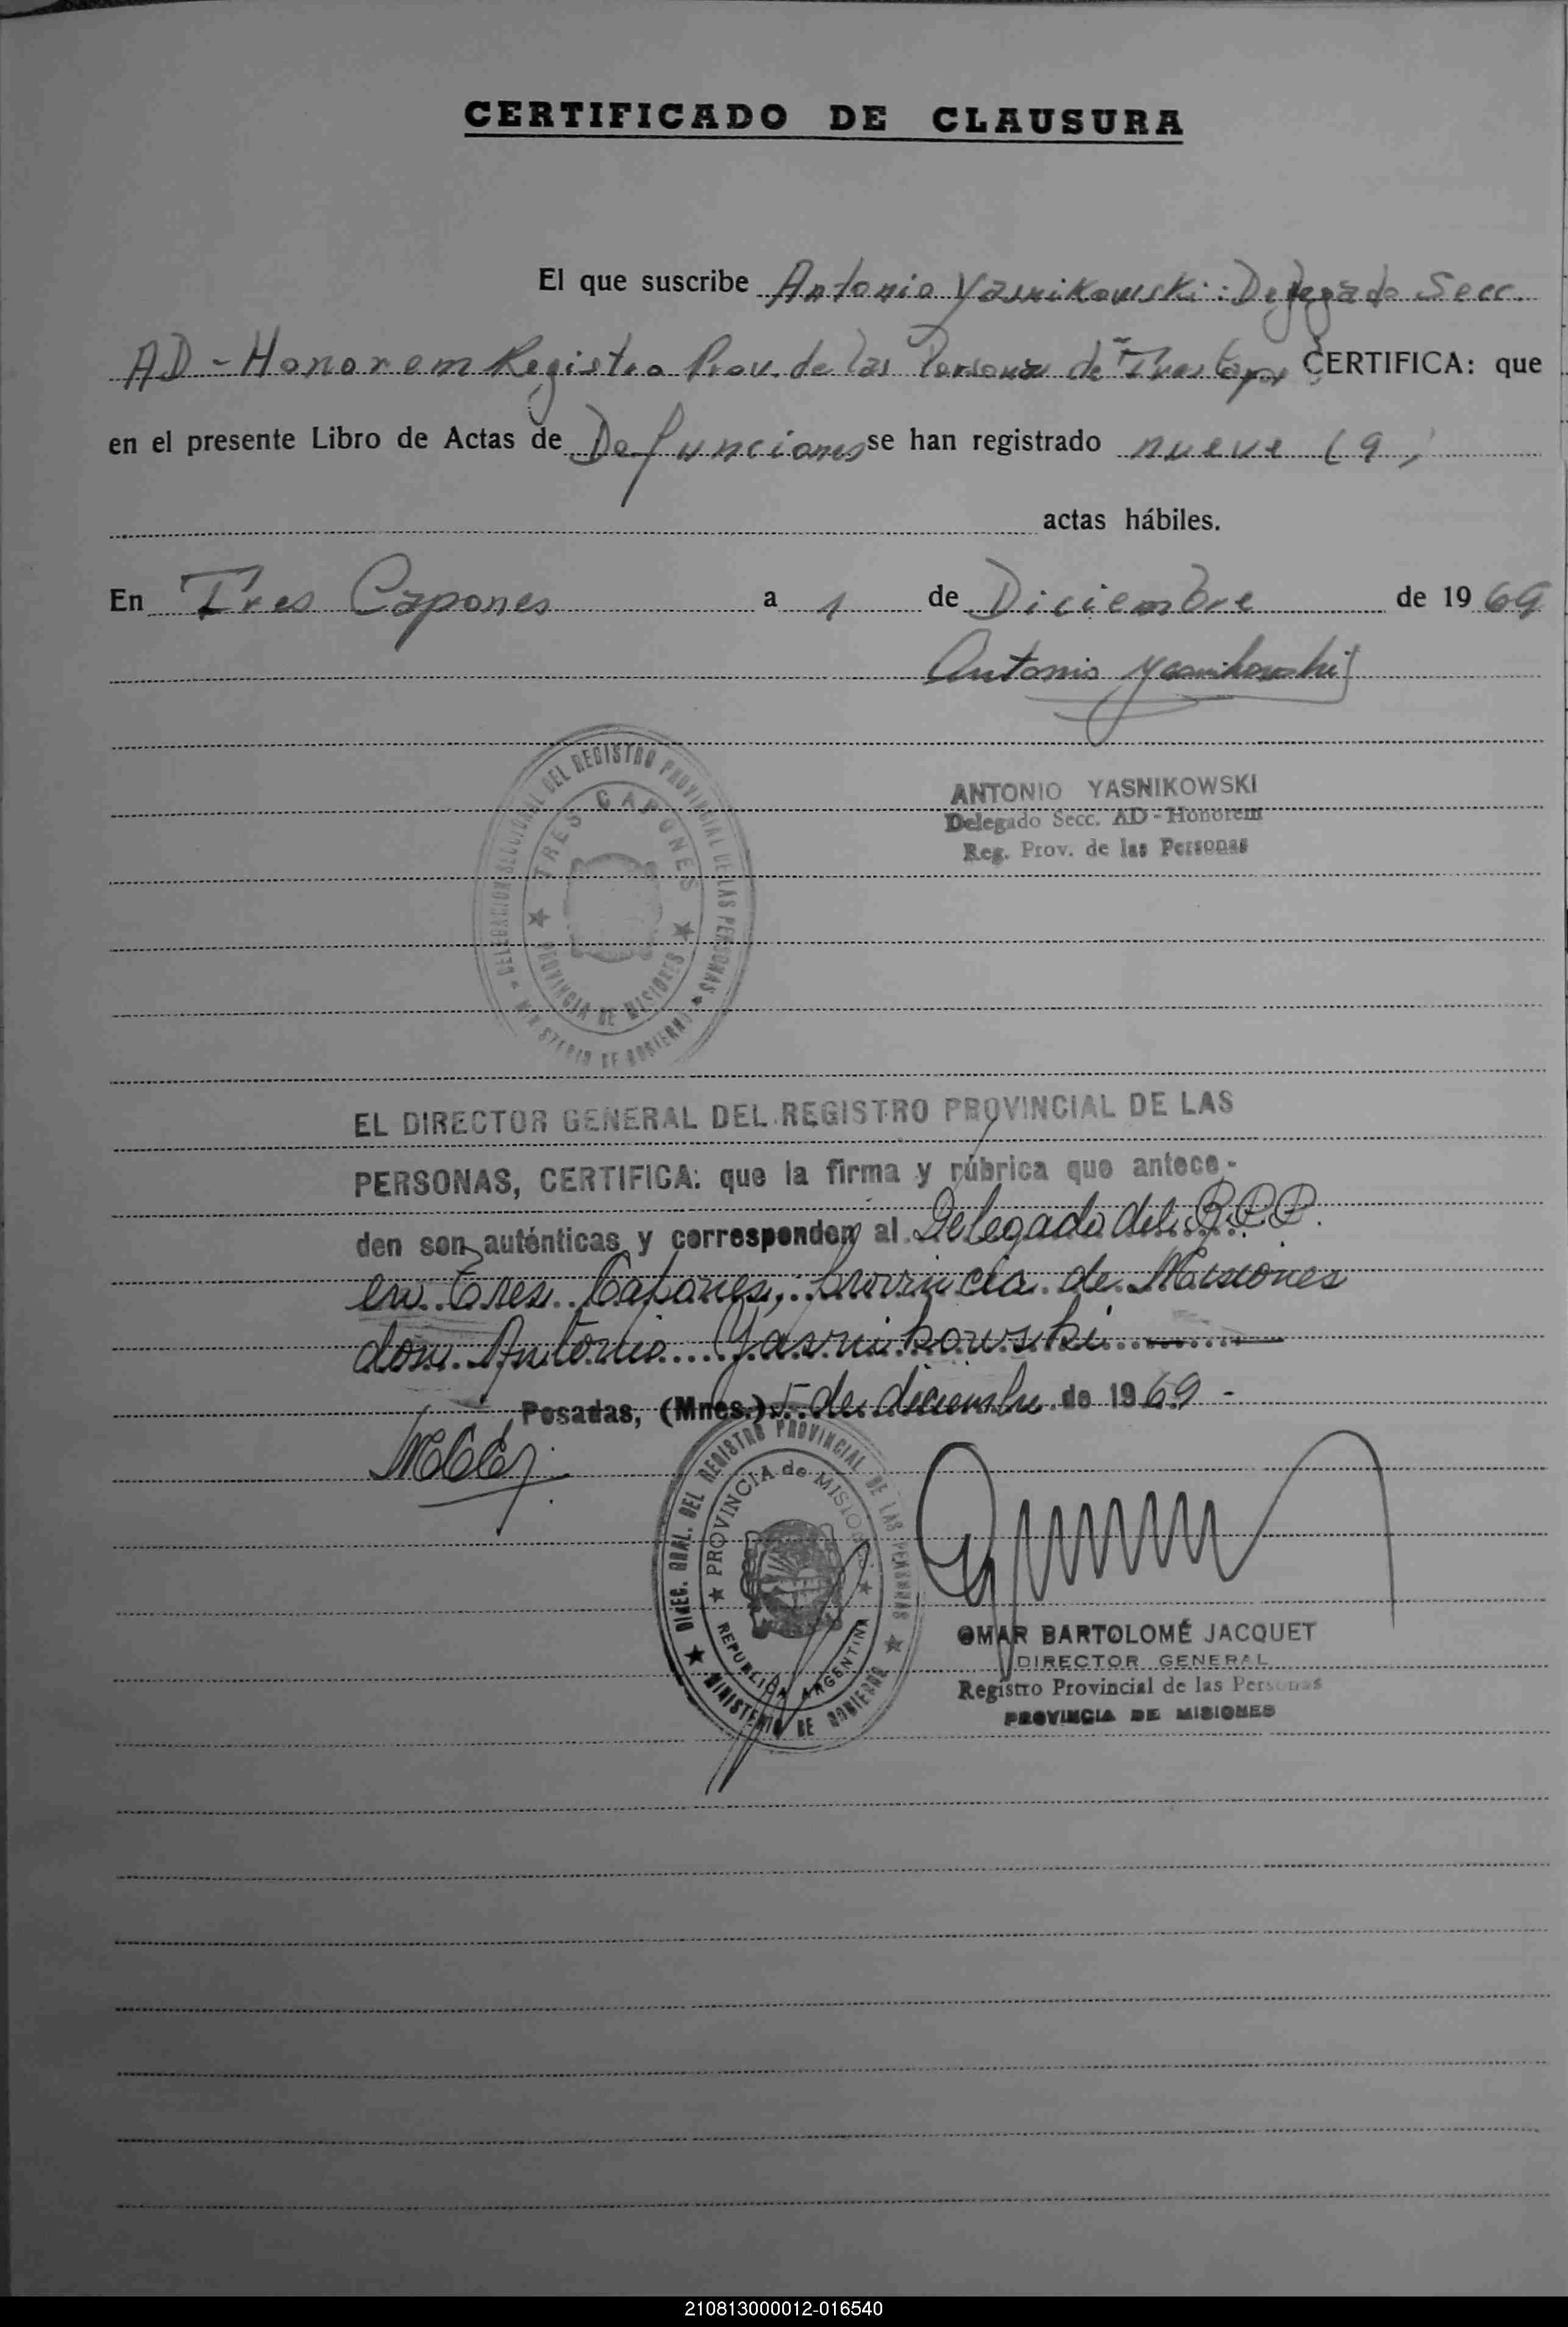 CERTIFICADO DE CLAUSURA
El que suscribe Antonio Yasnikowski: Delegado Secc.
AD-Honorem Registro Prov. de las Personas de Tres Capones CERTIFICA: que
en el presente Libro de Actas de Defunciones se han registrado nueve (9)
actas hábiles.
En Tres Capones a 1 de Diciembre de 1969
Antonio Yasnikowski
DELEGACION SECCIONAL DEL REGISTRO PROVINCIAL DE LAS PERSONAS ★ MINISTERIO DE GOBIERNO ★
TRES CAPONES ★ PROVINCIA DE MISIONES ★
ANTONIO YASNIKOWSKI
Delegado Secc. AD-Honorem
Reg. Prov. de las Personas
EL DIRECTOR GENERAL DEL REGISTRO PROVINCIAL DE LAS
PERSONAS, CERTIFICA: que la firma y rúbrica que antece-
den son auténticas y corresponden al Delegado del R.P.P.
en Tres Capones, Provincia de Misiones
don Antonio Yasnikowski
Posadas, (Mnes.) 5 de diciembre de 1969 -
DIREC. GRAL. DEL REGISTRO PROVINCIAL DE LAS PERSONAS ★ MINISTERIO DE GOBIERNO ★
PROVINCIA de MISIONES ★ REPUBLICA ARGENTINA ★
OMAR BARTOLOMÉ JACQUET
DIRECTOR GENERAL
Registro Provincial de las Personas
PROVINCIA DE MISIONES
210813000012-016540